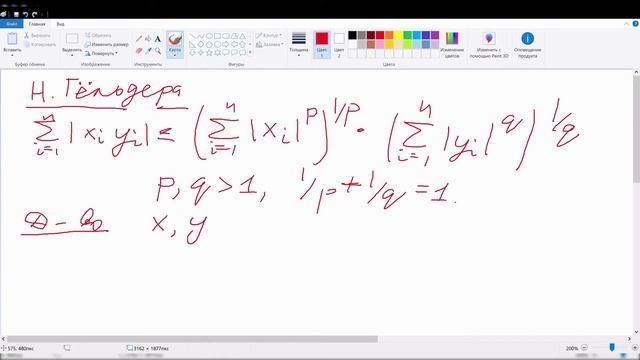 Файл Главная Вид
Вставить Выделить Обрезать Изменить размер Повернуть Кисти Контур Заливка Толщина Цвет 1 Цвет 2 Изменение цветов Изменить с помощью Paint 3D Оповещение о продукте
Буфер обмена Изображение Инструменты Фигуры Цвета
Н. Гёльдера
∑_{i=1}^{n} |x_i y_i| ≤ (∑_{i=1}^{n} |x_i|^p)^{1/p} · (∑_{i=1}^{n} |y_i|^q)^{1/q}
p, q > 1, 1/p + 1/q = 1.
Д-во x, y
575, 480пкс 3162 × 1877пкс 200%